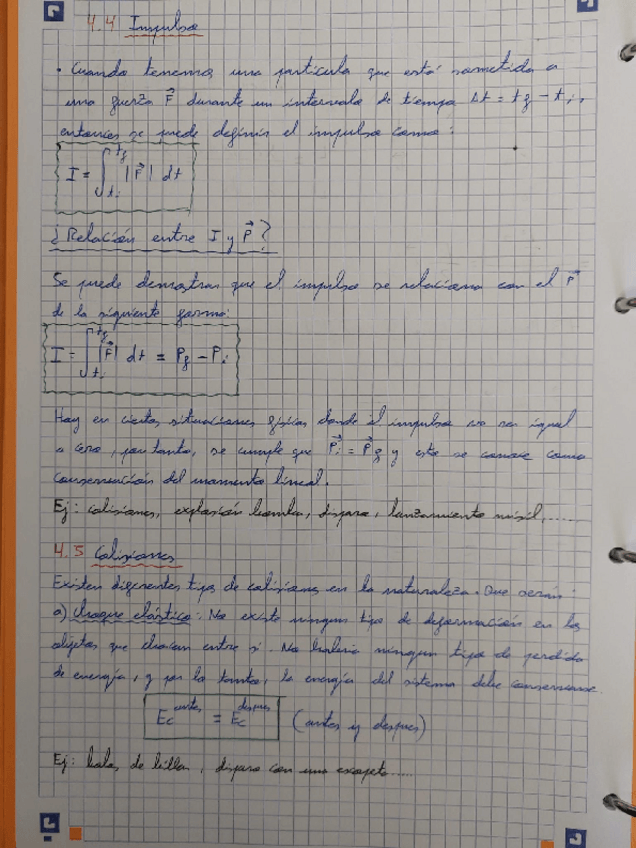 4.4 Impulso
• Cuando tenemos una partícula que está sometida a
una fuerza F⃗ durante un intervalo de tiempo Δt = tf - ti,
entonces se puede definir el impulso como:
I = ∫ti^tf |F⃗| dt
¿Relación entre I y P⃗?
Se puede demostrar que el impulso se relaciona con el P⃗
de la siguiente forma:
I = ∫ti^tf |F⃗| dt = Pf - Pi
Hay en ciertas situaciones físicas donde el impulso va ser igual
a cero, por tanto, se cumple que P⃗i = P⃗f y esto se conoce como
conservación del momento lineal.
Ej: colisiones, explosión bomba, disparo, lanzamiento misil,.....
4.5 Colisiones
Existen diferentes tipos de colisiones en la naturaleza. Que serán:
a) choque elástico: No existe ningun tipo de deformación en los
objetos que chocan entre si. No habria ningun tipo de perdida
de energía, y por lo tanto, la energía del sistema debe conservarse.
Ec^antes = Ec^despues (antes y despues)
Ej: bolas de billar, disparo con una escopeta.....